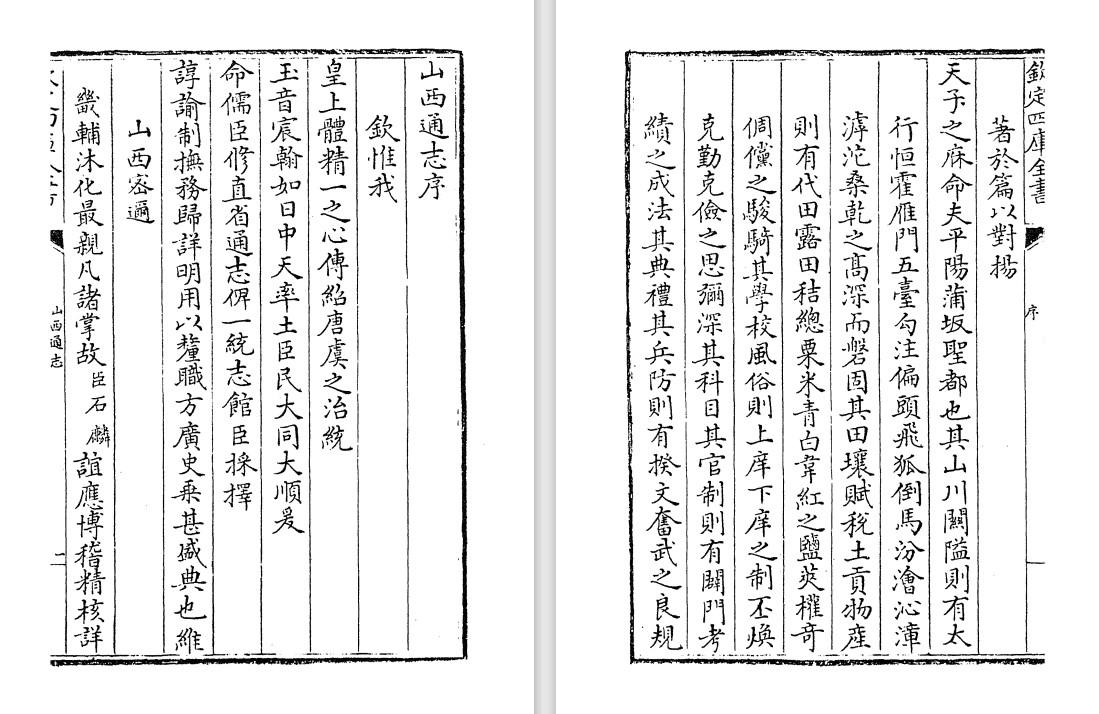 山西通志序
欽惟我
皇上體精一之心傳紹唐虞之治統
玉音宸翰如日中天率土臣民大同大順爰
命儒臣修直省通志俾一統志館臣採擇
諄諭制撫務歸詳明用以釐職方廣史乗甚盛典也維
山西密邇
畿輔沐化最親凡諸掌故臣石麟誼應博稽精核詳
山西通志
一
欽定四庫全書
序
著於篇以對揚
天子之庥命夫平陽蒲坂聖都也其山川關隘則有太
行恒霍雁門五臺勾注偏頭飛狐倒馬汾澮沁漳
滹沱桑乾之髙深而磐固其田壤賦税土貢物産
則有代田露田秸總粟米青白韋紅之鹽莢櫂奇
倜儻之駿騎其學校風俗則上庠下庠之制丕煥
克勤克儉之思彌深其科目其官制則有闢門考
績之成法其典禮其兵防則有揆文奮武之良規